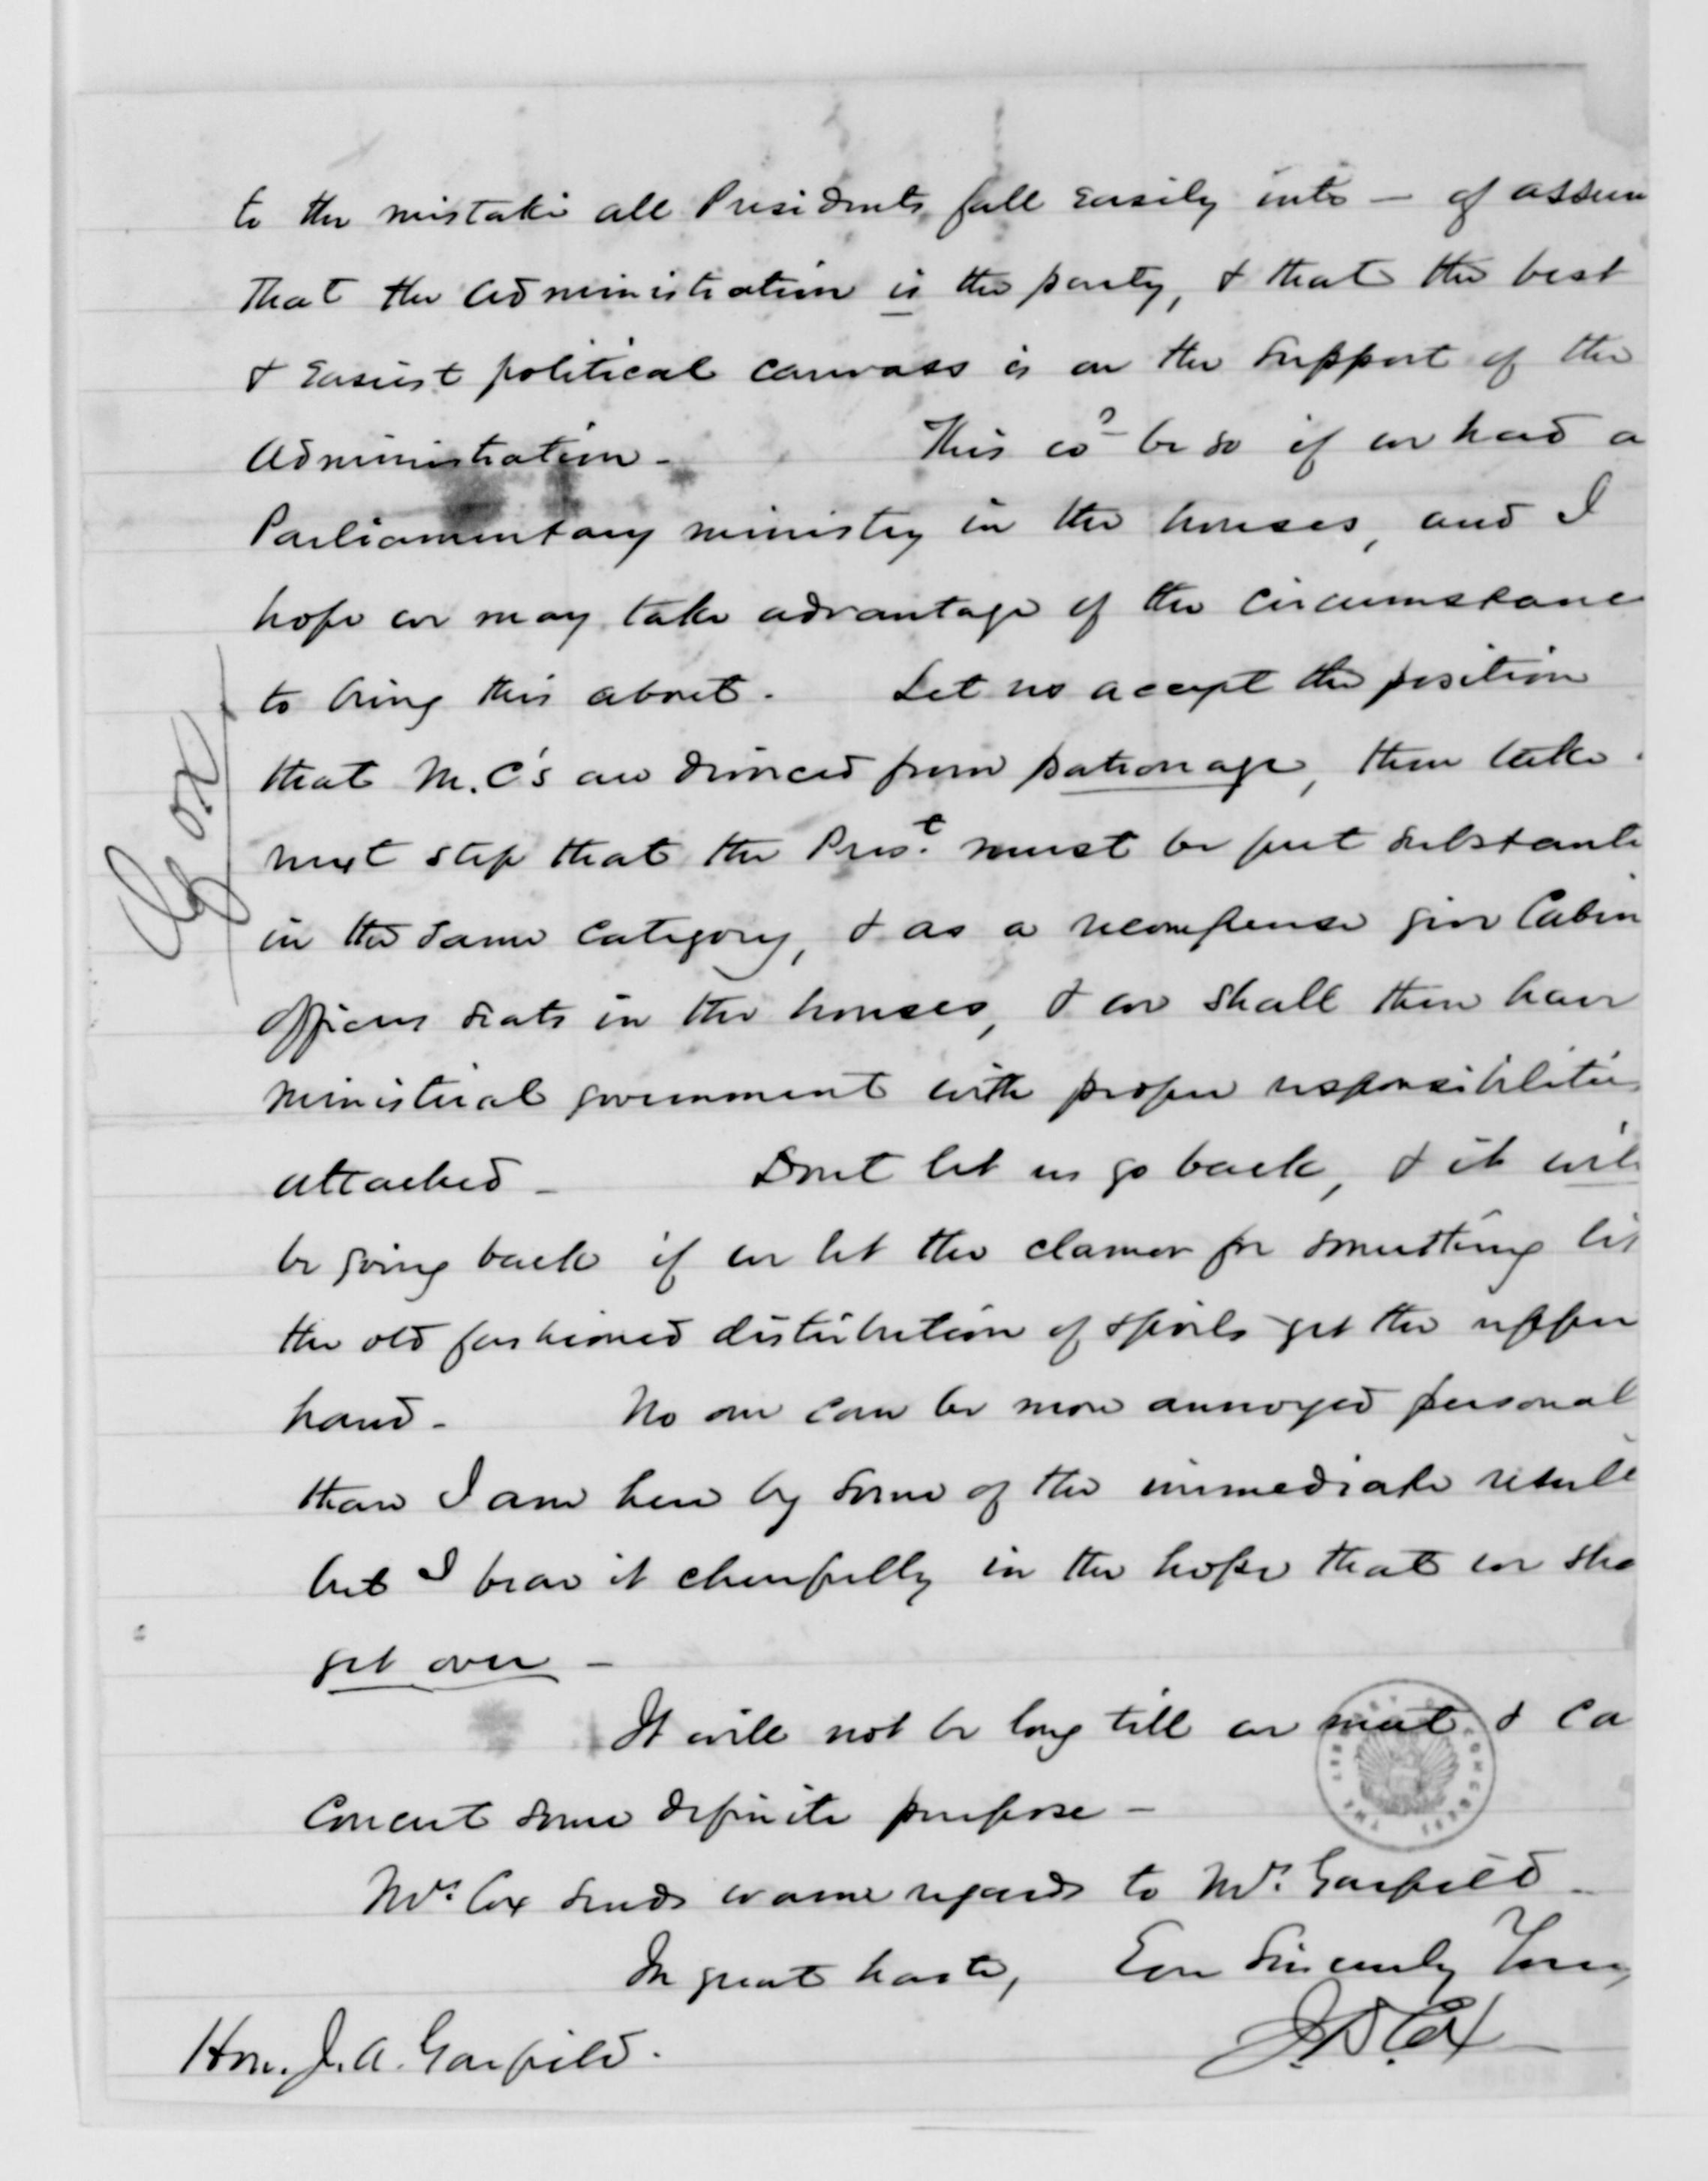 to the mistake all Presidents fall easily into — of assum
that the administration is the party, & that the best
& easiest political canvass is on the support of the
Administration – This cd be so if we had a
Parliamentary ministry in the houses, and I
hope we may take advantage of the circumstance
to bring this about. Let us accept the position
that M.C's are divorced from patronage, then take
next step that the Prest. must be put substanti
in the same category, & as a recompense give Cabin
officers seats in the houses, & we shall then have
ministerial government with proper responsibilities
attached – Dont let us go back, & it will
be going back if we let the clamor for something li
the old fashioned distribution of spoils get the upper
hand – No one can be more annoyed personal
than I am here by some of the immediate result
but I bear it cheerfully in the hope that we sha
get over –
It will not be long till we meet & ca
concert some definite purpose –
Mrs. Cox sends warm regards to Mrs. Garfield –
In great haste, Ever Sincerely Yours
J. D. Cox
Hon. J. A. Garfield.
Cox
THE LIBRARY OF CONGRESS